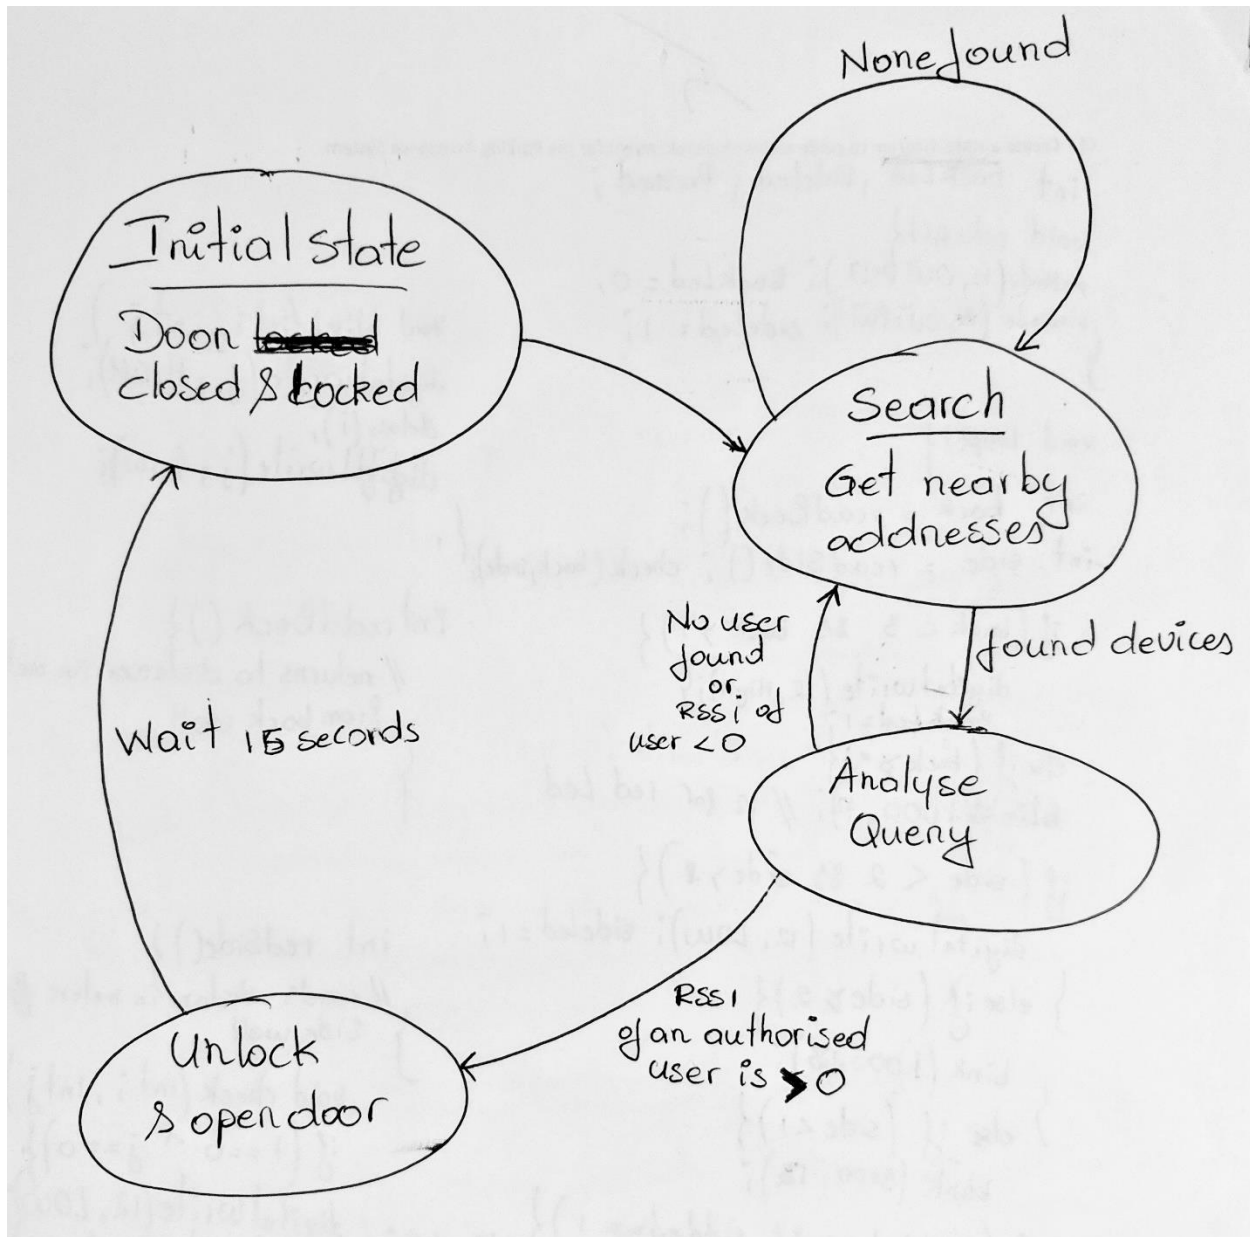 None found
Initial state
Door
closed & Locked
Search
Get nearby
addresses
No user
found
or
RSSi of
user <0
found devices
Wait 15 seconds
Analyse
Query
RSSI
of an authorised
user is >0
Unlock
& open door